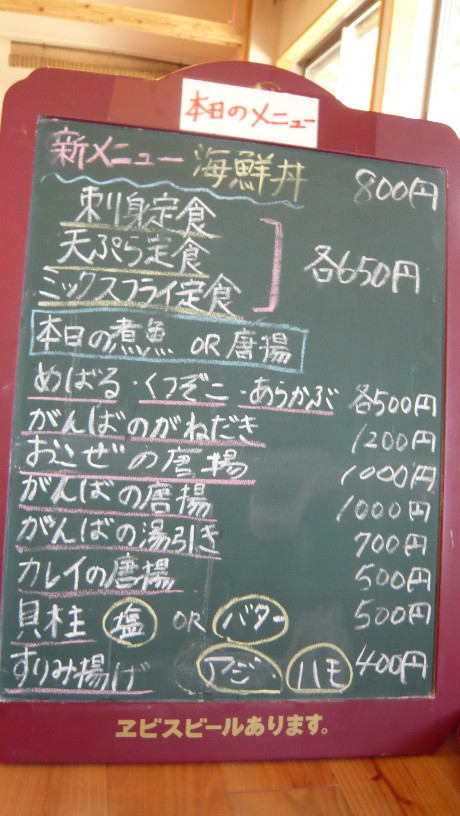 本日のメニュー
新メニュー 海鮮丼 800円
刺身定食
天ぷら定食 各650円
ミックスフライ定食
本日の煮魚 OR 唐揚
めばる・くつぞこ・あらかぶ 各500円
がんばのがねだき 1200円
おこぜの唐揚 1000円
がんばの唐揚 1000円
がんばの湯引き 700円
カレイの唐揚 500円
貝柱 塩 OR バター 500円
すりみ揚げ アジ、ハモ 400円
ヱビスビールあります。